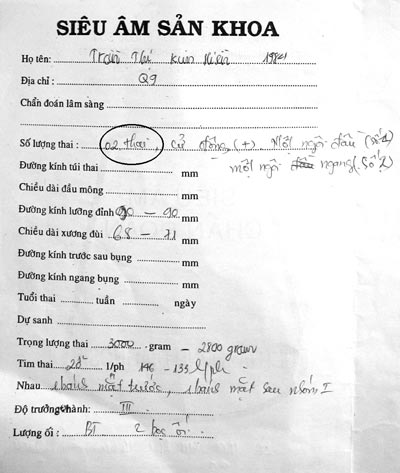 SIÊU ÂM SẢN KHOA
Họ tên: Trần Thị Kim Hiền 1984
Địa chỉ: Q9
Chẩn đoán lâm sàng
Số lượng thai: 02 thai, cử động (+) Một ngôi đầu (số 1)
một ngôi đầu ngang (số 2)
Đường kính túi thai mm
Chiều dài đầu mông mm
Đường kính lưỡng đỉnh 90 – 90 mm
Chiều dài xương đùi 68 – 71 mm
Đường kính trước sau bụng mm
Đường kính ngang bụng mm
Tuổi thai tuần ngày
Dự sanh
Trọng lượng thai 3000 gram – 2800 gram
Tim thai 2đ² l/ph 146 – 133 l/ph
Nhau 1 bánh mặt trước, 1 bánh mặt sau nhóm I
Độ trưởng thành: III
Lượng ối: BT 2 bọc ối.